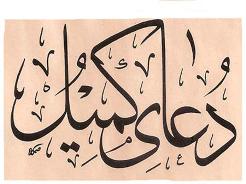 دُعای کُمَیْل